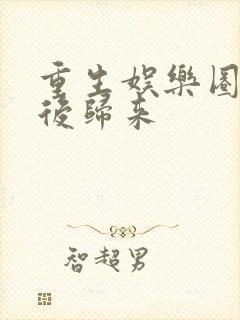 重生娱樂圈
後歸来
智超男